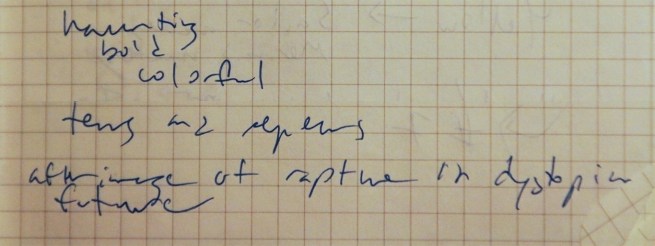 haunting
bold
colorful
tens and
afterimage of rapture in dystopian
future